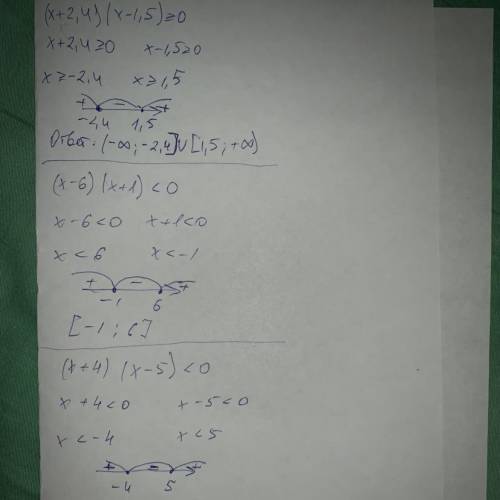 (x+2,4) (x-1,5)≥0
x+2,4≥0 x-1,5≥0
x≥-2,4 x≥1,5
+ - +
-2,4 1,5
Ответ: (-∞; -2,4]∪[1,5; +∞)
(x-6) (x+1)<0
x-6<0 x+1<0
x<6 x<-1
+ - +
-1 6
[-1; 6]
(x+4) (x-5)<0
x+4<0 x-5<0
x<-4 x<5
+ - +
-4 5